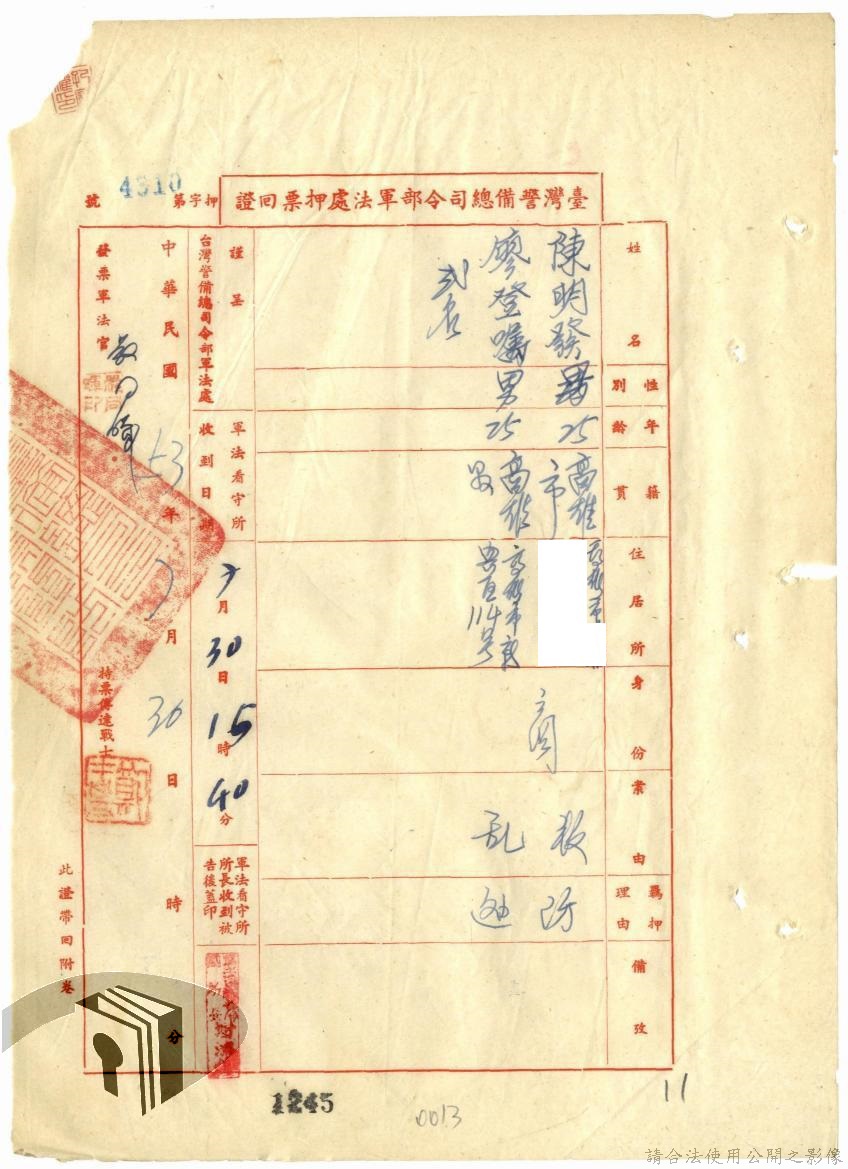 臺灣警備總司令部軍法處押票回證
押字第4310號
姓名
性別
年齡
籍貫
住居所
身份
案由
羈押理由
備攷
陳明發 男 25 高雄市 高雄市
廖登 男 25 高雄 高雄市 114号
弍名
商
叛乱
防逃
謹呈
台灣警備總司令部軍法處
軍法看守所收到日期 7月30日15時40分
軍法看守所所長收到被告後蓋印
中華民國53年7月30日 時 分
發票軍法官
持票傳達戰士
此證帶回附卷
1245
0013
11
請合法使用公開之影像